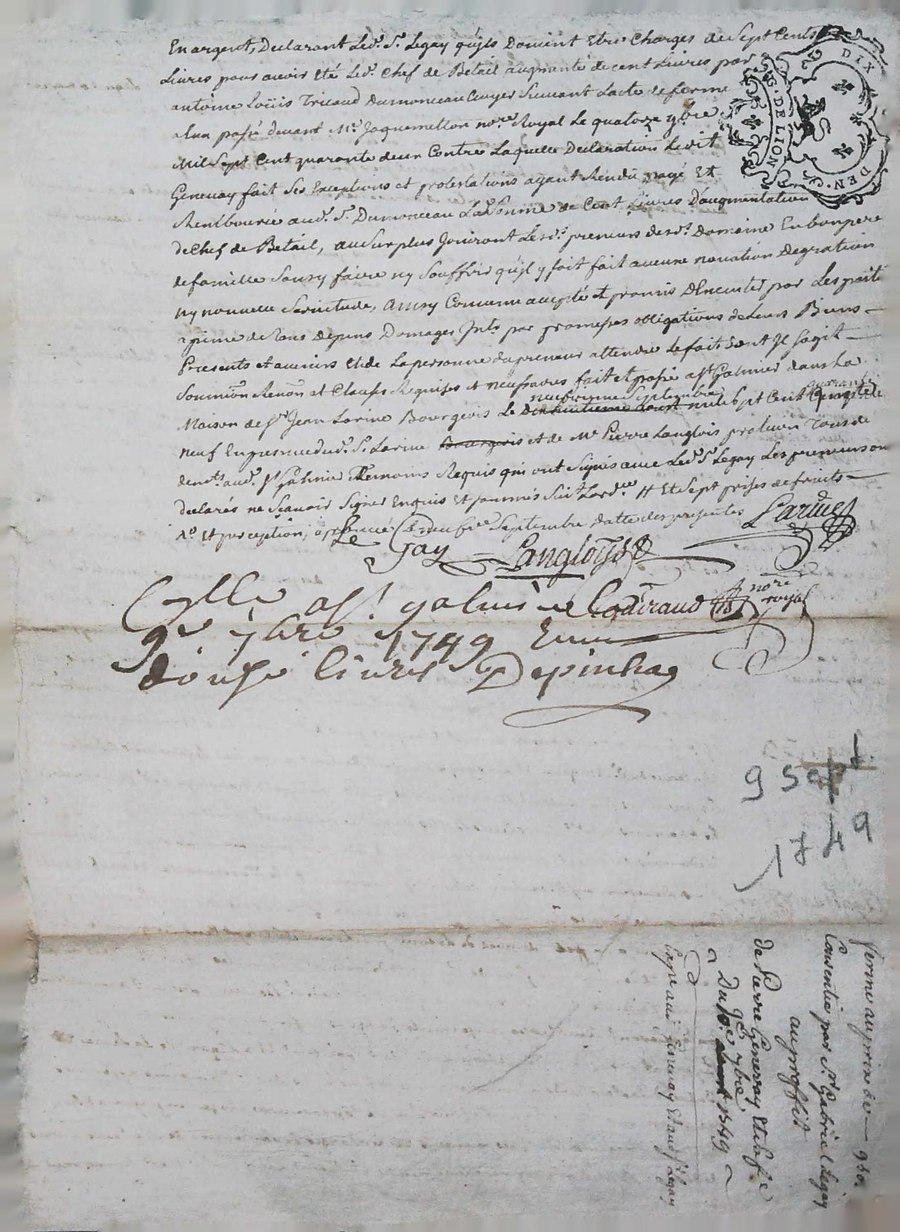 En argent, Declarant Led.t S.r Legay qu'ils Doivent Etre Charges de Sept Cents
Livres pour avoir Eté Led.t Chef de Betail augmenté de cent Livres par
antoine Loüis Tricaud Dumonceau Ecuyer Suivant Lacte de ferme
a lun passé devant M.e Jaquemetton no.re Royal Le quatorze 7bre
Mil Sept Cent quarante deux Contre Laquelle Declaration Ledit
Genevay fait Ses Exceptions et protestations ayant Rendû payé Et
Rembourcé aud.t S.r Dumonceau Lad.e Somme de Cent Livres D'augmentation
de Chef de Betail, au Surplus Joüiront Lesd.s preneurs desd.s Domaine En bon pere
de famille Sans y faire ny Souffrir qu'il y soit fait aucune novation Degration
ny nouvelle Servitude, Ainsy Convenu accepté et promis D'Executer par Les parties
a peine de Tous depens Domages Jnts par promesses obligations de Leurs Biens
Presents et avenirs et de La personne du preneur attendu Le fait dont Jl Sagit
Soumi.on Renon.on et Clauses Requises et necessaires fait et passé a S.t Galmier dans La
Maison de S.r Jean Larive Bourgeois Le neufvieme Septembre mil Sept Cent quarante
neuf En presence dud. S.r Larive et de M.e Pierre Langlois praticien Tous deux
demts aud. S.t Galmier Temoins Requis qui ont Signés avec Led.t S.r Legay Les preneurs ont
declarés ne Scavoir Signer Enquis Et Sommés Suiv.t Lord.ce # Et Sept prises de fruits
Et perception, Septembre datte des presentes Larive
Le Gay Langlois
Coderaud no.re royal
C.lle a S.t galmier Le
9.e 7bre 1749 Reçu
douze livres Depinhac
DIX
DEN.
G. DE LION
950
1749
ferme au prix de 950
Consentie par S.r Gabriel Legay
au proffit
de Pierre Genevay Et Sa fe
Du 9.e 7bre 1749
Copie au d. Genevay Et au d. S.r Legay